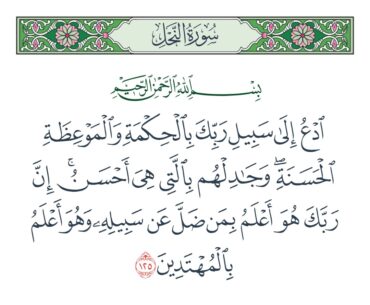 سُورَةُ النَّحْلِ
بِسْمِ اللَّهِ الرَّحْمَٰنِ الرَّحِيمِ
ٱدْعُ إِلَىٰ سَبِيلِ رَبِّكَ بِٱلْحِكْمَةِ وَٱلْمَوْعِظَةِ
ٱلْحَسَنَةِۖ وَجَٰدِلْهُم بِٱلَّتِي هِيَ أَحْسَنُۚ إِنَّ
رَبَّكَ هُوَ أَعْلَمُ بِمَن ضَلَّ عَن سَبِيلِهِۦ وَهُوَ أَعْلَمُ
بِٱلْمُهْتَدِينَ ١٢٥